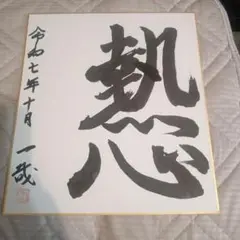 執心
令和七年十月 一哉